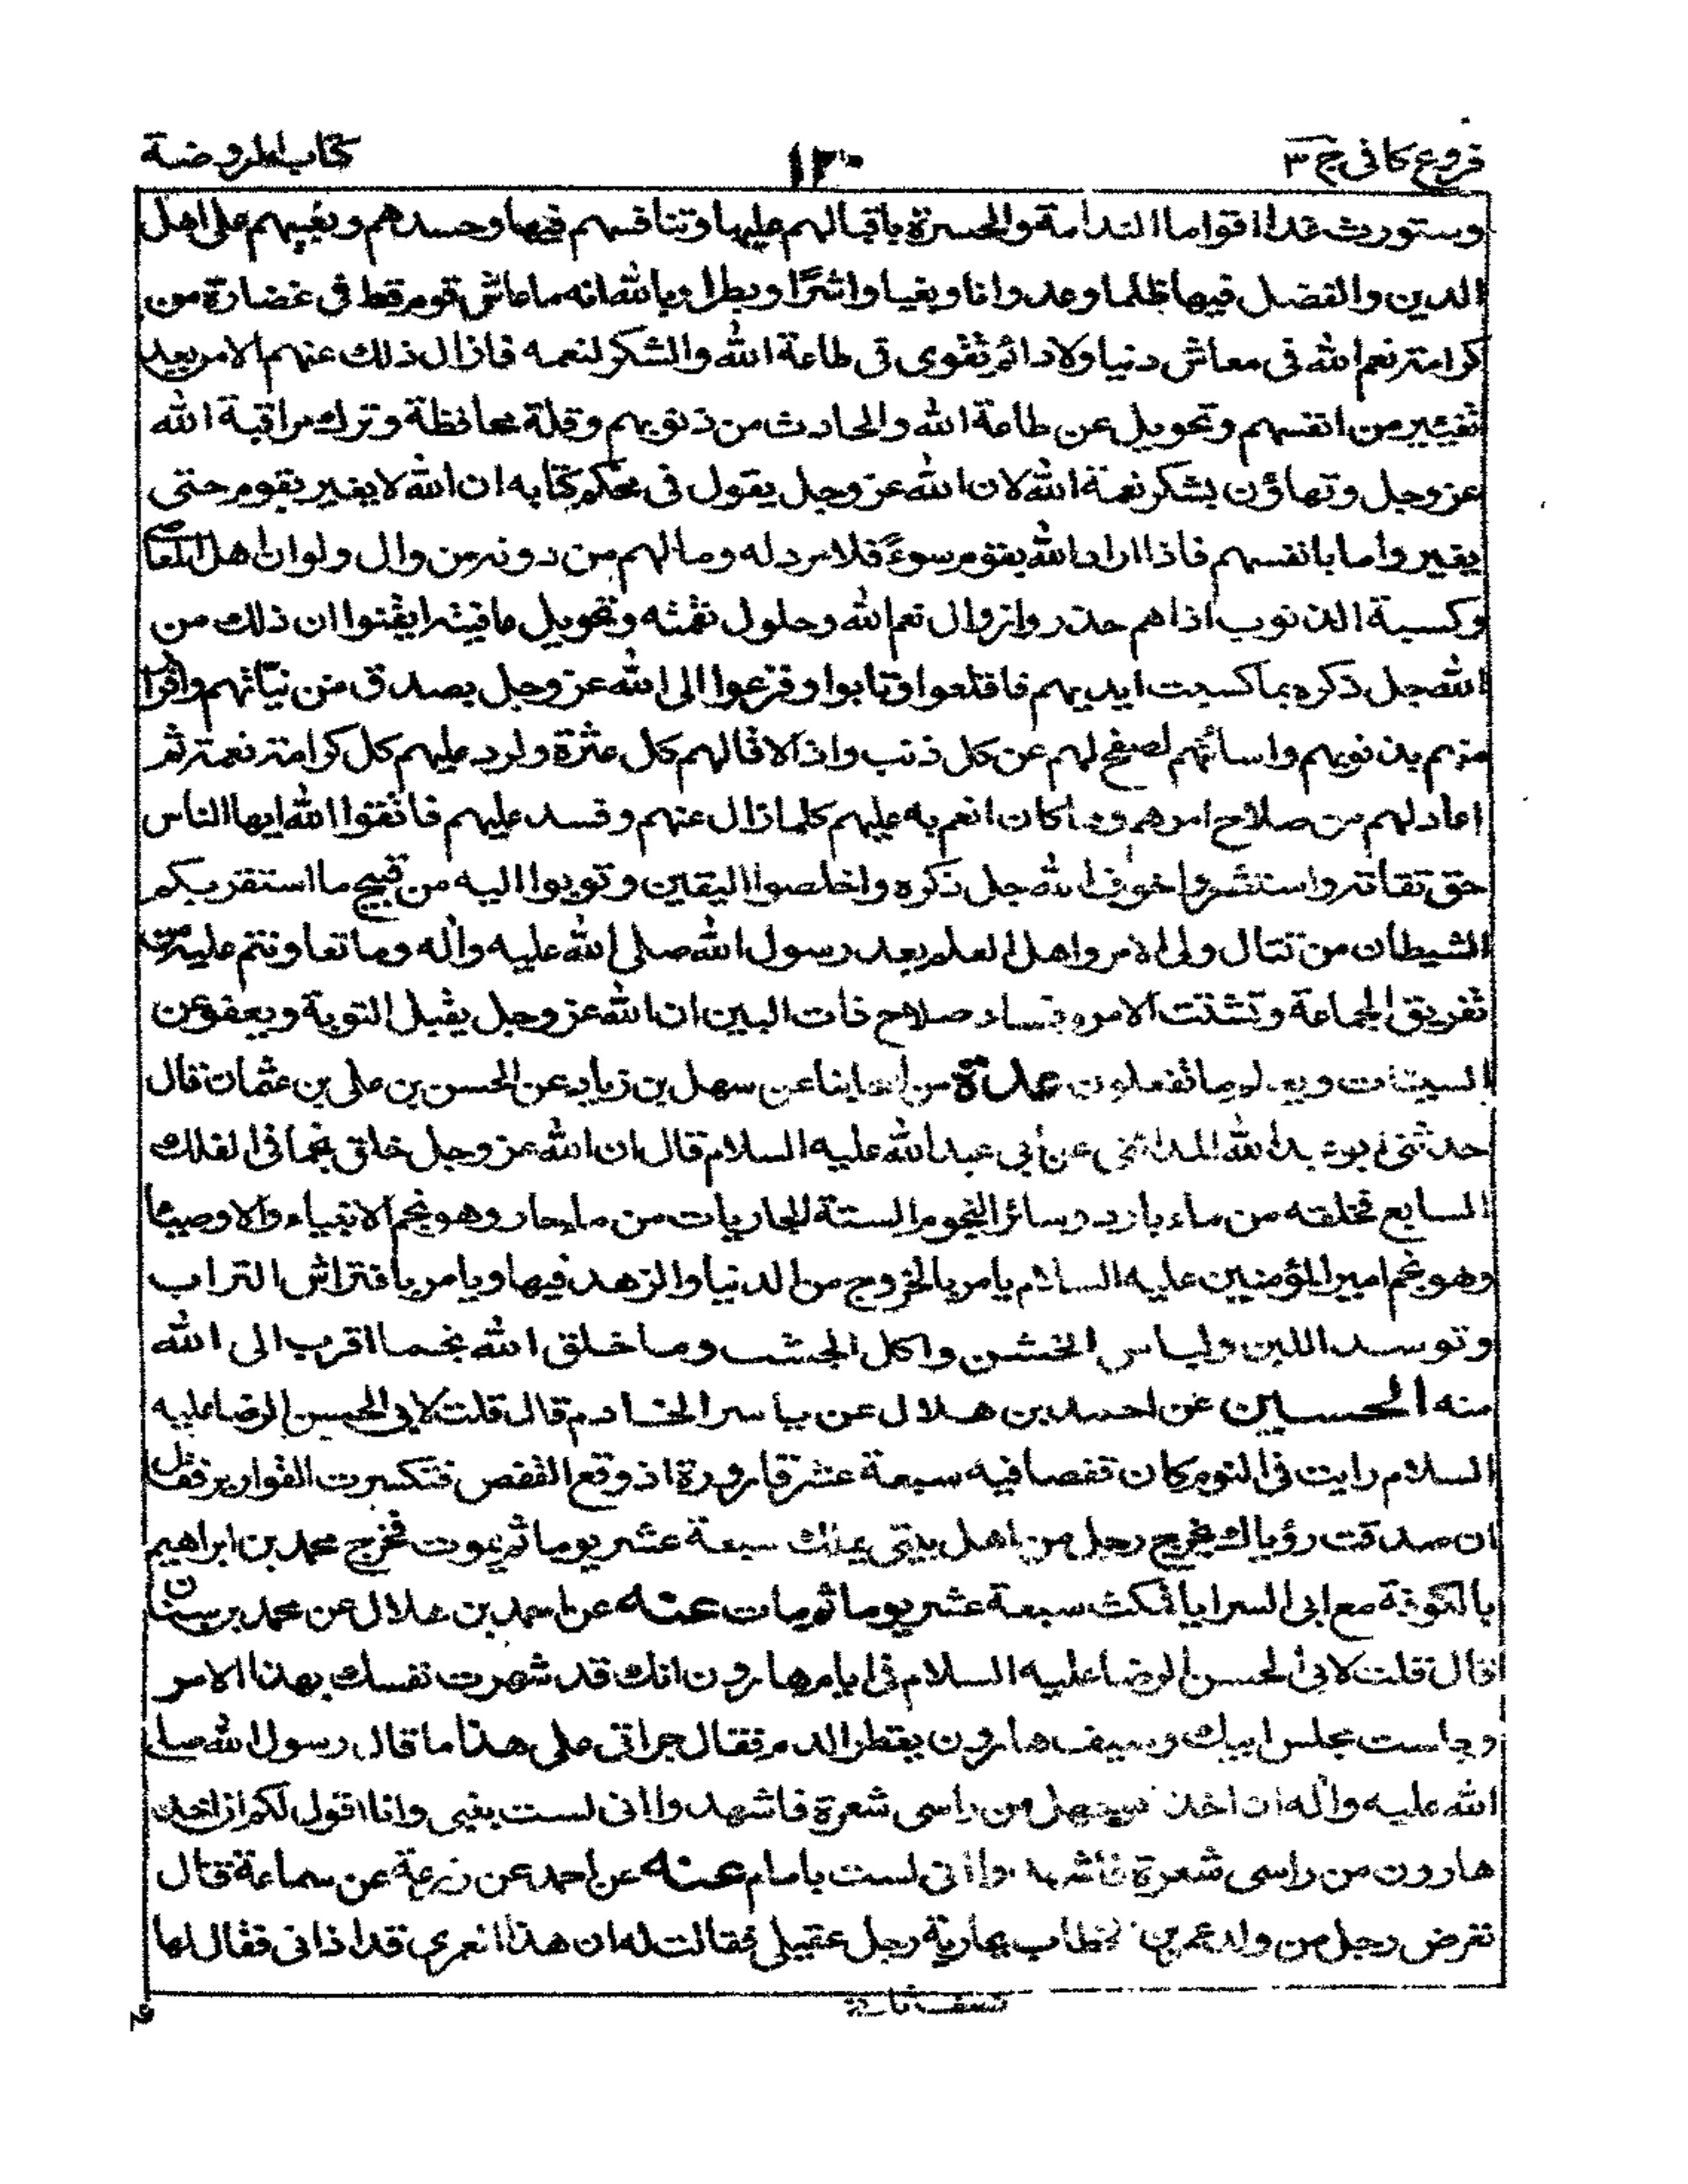 فروع كافى ج ٣
١٣٠
كتاب الروضة
وستورث غدا اقواما الندامة والحسرة باقبالهم عليها وتنافسهم فيها وحسدهم وبغيهم على اهل
الدين والفضل فيها ظلما وعدوانا وبغيا واشرًا وبطرا وبالله انه ما عاش قوم قط فى غضارة من
كرامة نعم الله فى معاش دنيا ولا دائم تقوى فى طاعة الله والشكر لنعمه فازال ذلك عنهم الا من بعد
تغيير من انفسهم وتحويل عن طاعة الله والحادث من ذنوبهم وقلة محافظة وترك مراقبة الله
عز وجل وتهاؤن بشكر نعمة الله لان الله عز وجل يقول فى محكم كتابه ان الله لا يغير بقوم حتى
يغيروا ما بانفسهم فاذا اراد الله بقوم سوءً فلا مرد له وما لهم من دونه من وال ولو ان اهل المعاصى
وكسبة الذنوب اذا هم حذروا زوال نعم الله وحلول نقمته وتحويل عافيته ايقنوا ان ذلك من
الله جل ذكره بما كسبت ايديهم فاقلعوا وتابوا وفزعوا الى الله عز وجل بصدق من نيّاتهم واقرار
منهم بذنوبهم واسائتهم لصفح لهم عن كل ذنب واذا لاقالهم كل عثرة ولرد عليهم كل كرامة نعمة ثم
اعاد لهم من صلاح امرهم ومما كان انعم به عليهم كلما زال عنهم وفسد عليهم فاتقوا الله ايها الناس
حق تقاته واستشعروا خوف الله جل ذكره واخلصوا اليقين وتوبوا اليه من قبيح ما استفزكم
الشيطان من قتال ولى الامر واهل العلم بعد رسول الله صلى الله عليه واله وما تعاونتم عليه من
تفريق الجماعة وتشتت الامر وفساد صلاح ذات البين ان الله عز وجل يقبل التوبة ويعفو عن
السيئات ويعلم ما تفعلون عدة من اصحابنا عن سهل بن زياد عن الحسن بن على بن عثمان قال
حدثنى ابو عبد الله المدائنى عن ابى عبد الله عليه السلام قال ان الله عز وجل خلق نجما فى الفلك
السابع فخلقه من ماء بارد وسائر النجوم الستة الجاريات من ماء حار وهو نجم الانبياء والاوصياء
وهو نجم امير المؤمنين عليه السلام يامر بالخروج من الدنيا والزهد فيها ويامر بافتراش التراب
وتوسد اللبن ولباس الخشن واكل الجشب وما خلق الله نجما اقرب الى الله
منه الحسين عن احمد بن هلال عن ياسر الخادم قال قلت لابى الحسن الرضا عليه
السلام رايت فى النوم كان قفصا فيه سبعة عشر قارورة اذ وقع القفص فتكسرت القوارير فقال
ان صدقت رؤياك يخرج رجل من اهل بيتى يملك سبعة عشر يوما ثم يموت فخرج محمد بن ابراهيم
بالكوفة مع ابى السرايا فمكث سبعة عشر يوما ثم مات عنه عن احمد بن هلال عن محمد بن سنان
قال قلت لابى الحسن الرضا عليه السلام فى ايام هارون انك قد شهرت نفسك بهذا الامر
وجلست مجلس ابيك وسيف هارون يقطر الدم فقال جراتى على هذا ما قال رسول الله صلى
الله عليه واله ان اخذ ابو جهل من راسى شعرة فاشهدوا انى لست بنبى وانا اقول لكم ان اخذ
هارون من راسى شعرة فاشهدوا انى لست بامام عنه عن احمد عن زرعة عن سماعة قال
تعرض رجل من ولد عمر بن الخطاب بجارية رجل عقيلى فقالت له ان هذا العمرى قد اذانى فقال لها